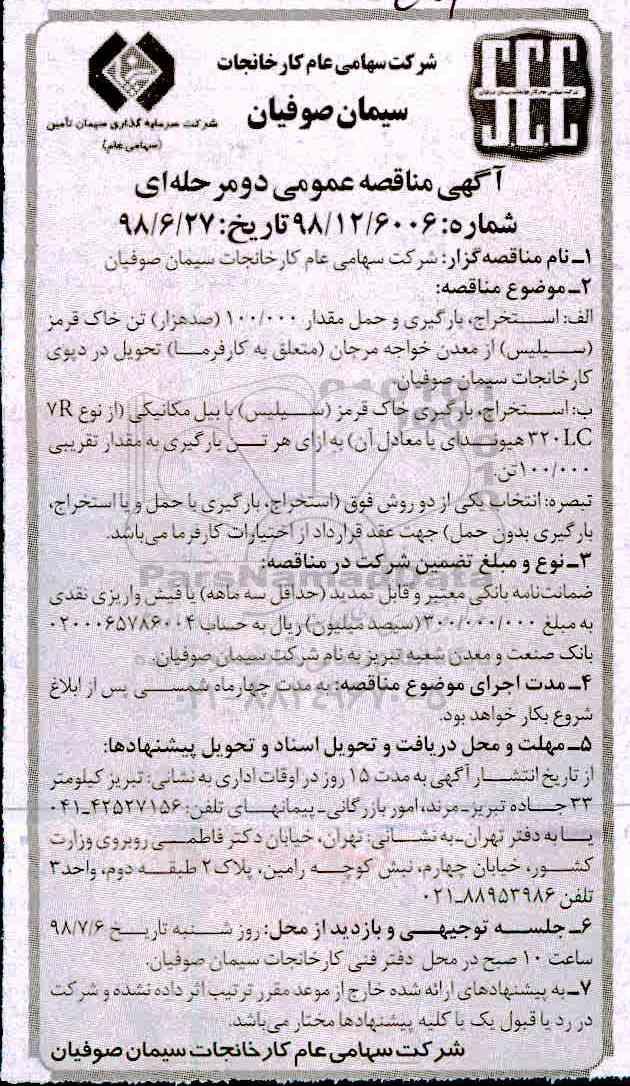 شرکت سهامی عام کارخانجات
سیمان صوفیان
شرکت سرمایه گذاری سیمان تأمین
(سهامی عام)
آگهی مناقصه عمومی دومرحله‌ای
شماره: ۹۸/۱۲/۶۰۰۶ تاریخ: ۹۸/۶/۲۷
۱ـ نام مناقصه‌گزار: شرکت سهامی عام کارخانجات سیمان صوفیان
۲ـ موضوع مناقصه:
الف: استخراج، بارگیری و حمل مقدار ۱۰۰/۰۰۰ (صدهزار) تن خاک قرمز
(سیلیس) از معدن خواجه مرجان (متعلق به کارفرما) تحویل در دپوی
کارخانجات سیمان صوفیان.
ب: استخراج، بارگیری خاک قرمز (سیلیس) با بیل مکانیکی (از نوع ۷R
۳۲۰LC هیوندای یا معادل آن) به ازای هر تن بارگیری به مقدار تقریبی
۱۰۰/۰۰۰تن.
تبصره: انتخاب یکی از دو روش فوق (استخراج، بارگیری با حمل و یا استخراج،
بارگیری بدون حمل) جهت عقد قرارداد از اختیارات کارفرما می‌باشد.
۳ـ نوع و مبلغ تضمین شرکت در مناقصه:
ضمانت‌نامه بانکی معتبر و قابل تمدید (حداقل سه ماهه) یا فیش واریزی نقدی
به مبلغ ۳۰۰/۰۰۰/۰۰۰ (سیصد میلیون) ریال به حساب ۰۲۰۰۰۶۵۷۸۶۰۰۴
بانک صنعت و معدن شعبه تبریز به نام شرکت سیمان صوفیان.
۴ـ مدت اجرای موضوع مناقصه: به مدت چهارماه شمسی پس از ابلاغ
شروع بکار خواهد بود.
۵ـ مهلت و محل دریافت و تحویل اسناد و تحویل پیشنهادها:
از تاریخ انتشار آگهی به مدت ۱۵ روز در اوقات اداری به نشانی: تبریز کیلومتر
۳۳ جاده تبریز ـ مرند، امور بازرگانی ـ پیمانهای تلفن: ۴۲۵۲۷۱۵۶ـ۰۴۱
یا به دفتر تهران ـ به نشانی: تهران، خیابان دکتر فاطمی روبروی وزارت
کشور، خیابان چهارم، نبش کوچه رامین، پلاک۲ طبقه دوم، واحد۳
تلفن ۸۸۹۵۳۹۸۶ـ۰۲۱
۶ـ جلسه توجیهی و بازدید از محل: روز شنبه تاریخ ۹۸/۷/۶
ساعت ۱۰ صبح در محل دفتر فنی کارخانجات سیمان صوفیان.
۷ـ به پیشنهادهای ارائه شده خارج از موعد مقرر ترتیب اثر داده نشده و شرکت
در رد یا قبول یک یا کلیه پیشنهادها مختار می‌باشد.
شرکت سهامی عام کارخانجات سیمان صوفیان
ParsNamadData